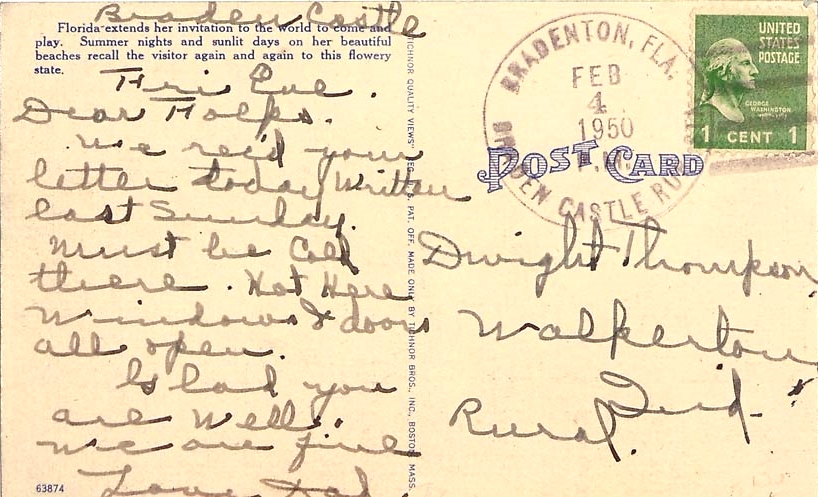 Braden Castle
Florida extends her invitation to the world to come and
play. Summer nights and sunlit days on her beautiful
beaches recall the visitor again and again to this flowery
state.
Fri Eve.
Dear Folks.
We rec'd your
letter today Written
last Sunday.
Must be Cold
there. Hot Here
Windows & doors
all open.
Glad you
are Well.
We are fine
Love
63874
TICHNOR QUALITY VIEWS" REG. U. S. PAT. OFF. MADE ONLY BY TICHNOR BROS., INC., BOSTON, MASS.
BRADENTON, FLA.
FEB
4
1950
BRADEN CASTLE RUR
UNITED
STATES
POSTAGE
GEORGE
WASHINGTON
1 CENT 1
POST CARD
Dwight Thompson
Walkerton
Ind.
Rural.